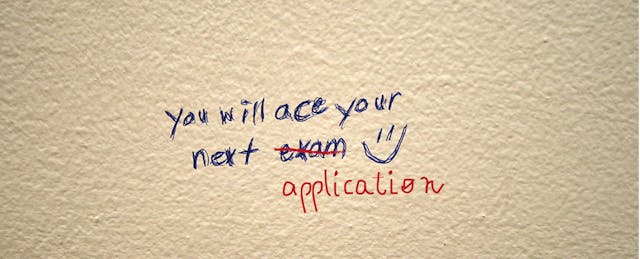 you will ace your
next exam
application